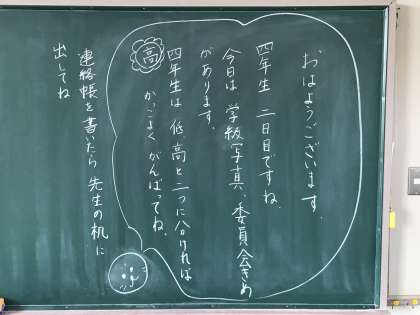 おはようございます。
四年生 二日目ですね。
今日は 学級写真、委員会きめ
があります。
四年生は 低高と二つに分ければ
高
かっこよく がんばってね。
連絡帳を書いたら 先生の机に
出してね